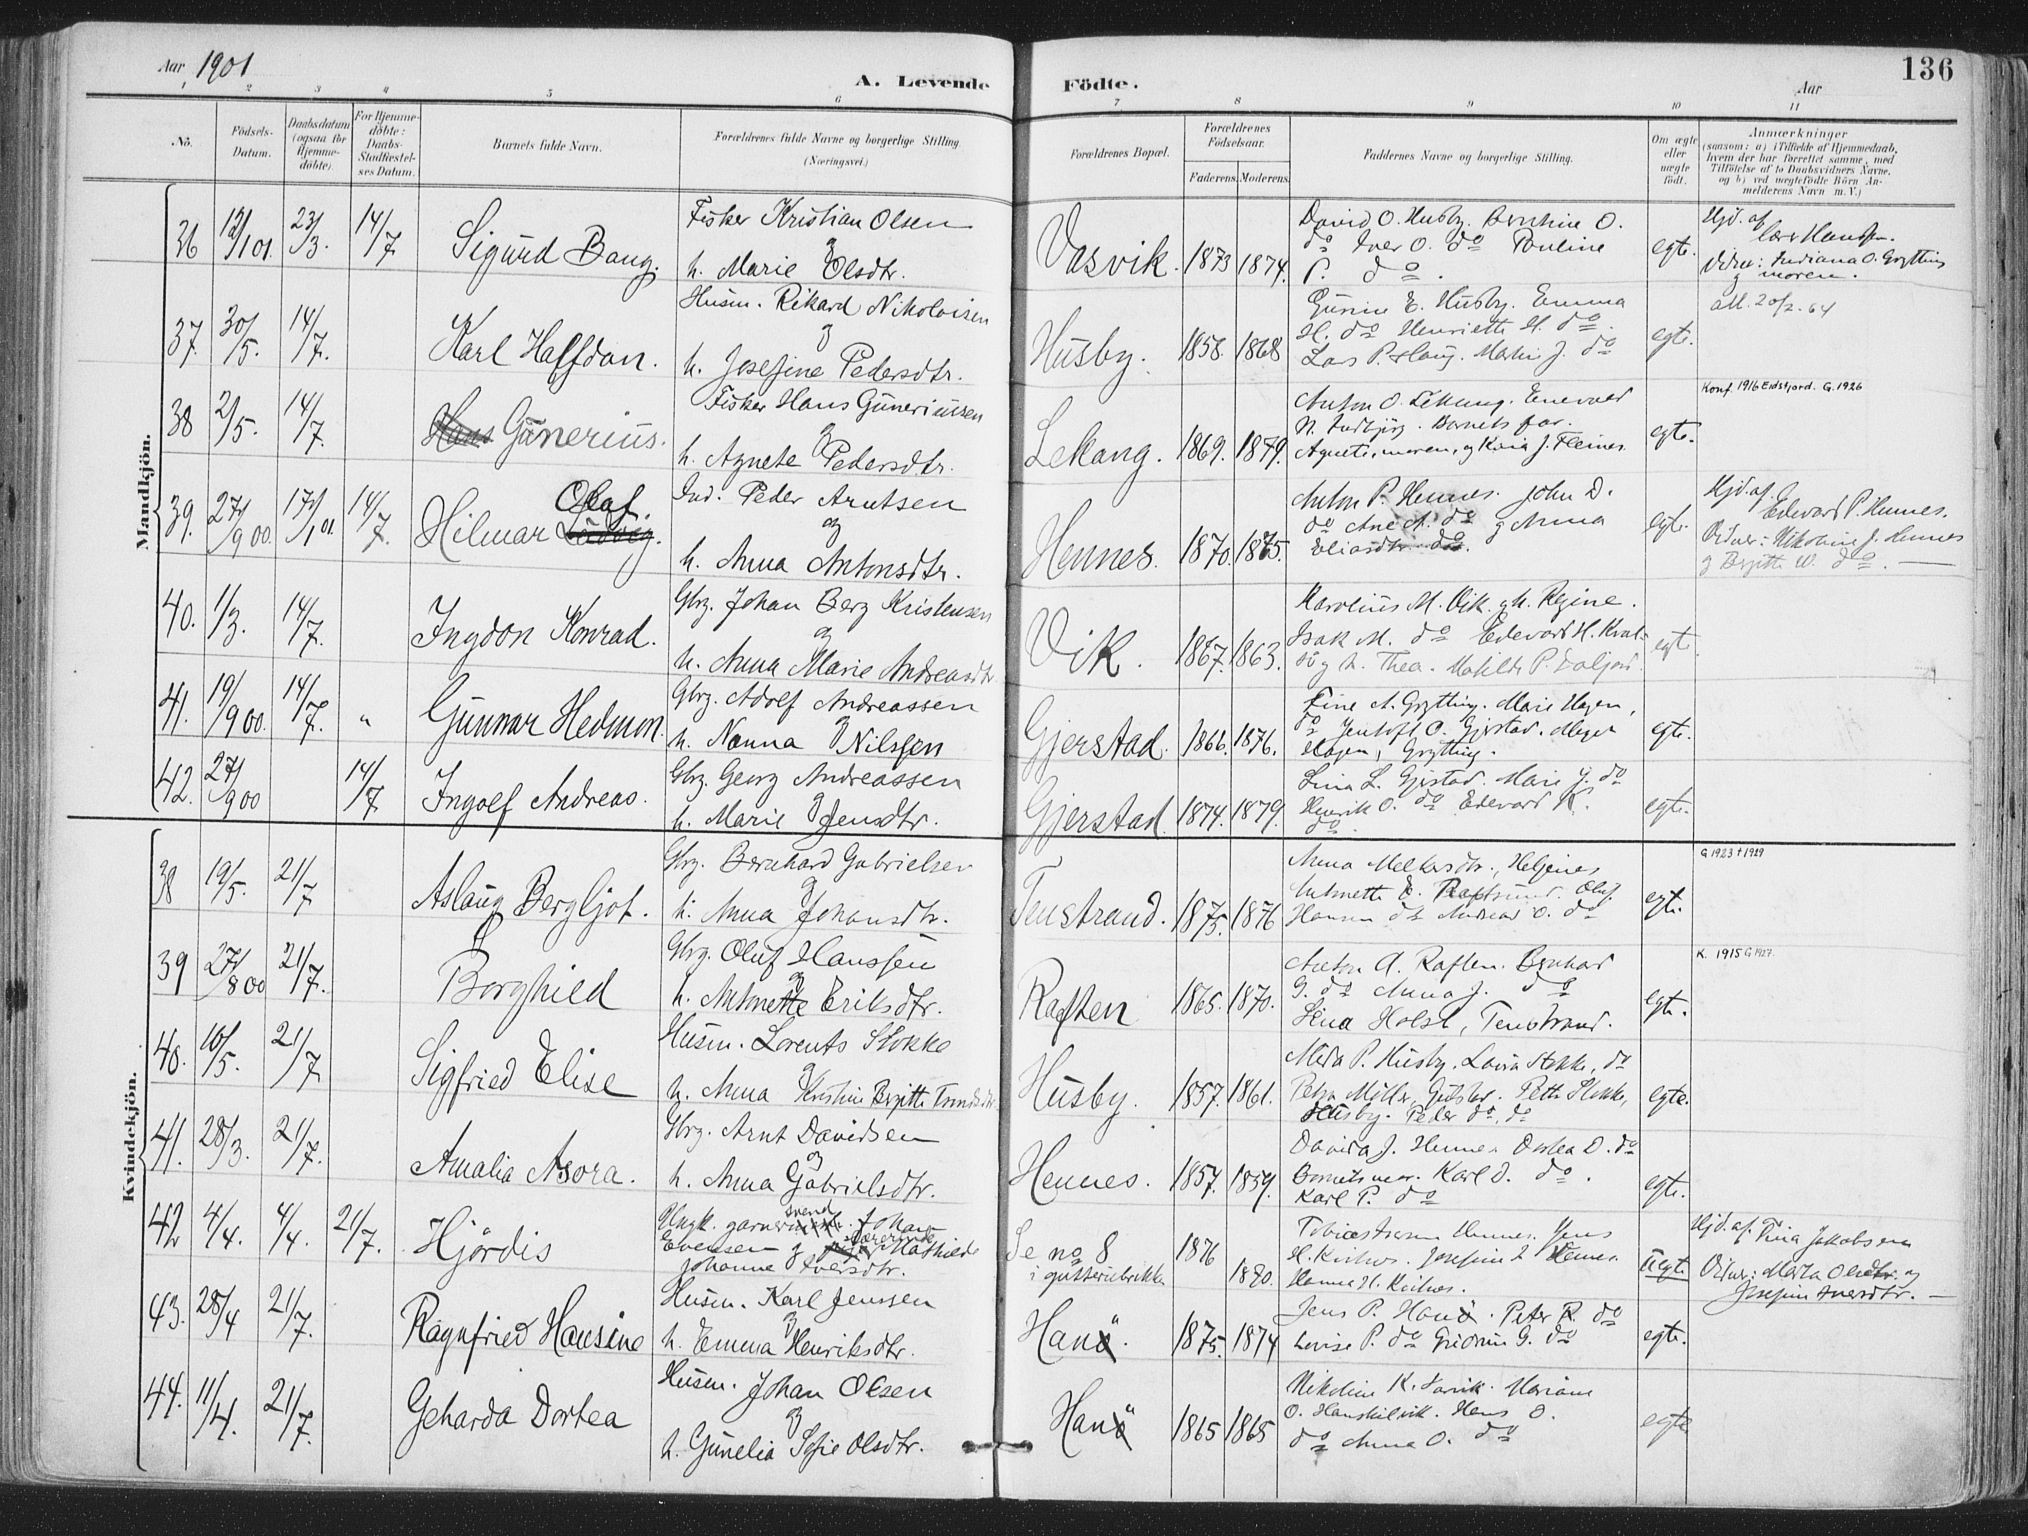 Aar 1901
A. Levende Födte.
Aar
136
1 2 3 4 5 6 7 8 9 10 11
No.
Födsels-Datum.
Daabsdatum (ogsaa for Hjemme-döbte).
For Hjemme-döbte: Daabs-Stadfæstel-ses Datum.
Barnets fulde Navn.
Forældrenes fulde Navne og borgerlige Stilling. (Næringsvei.)
Forældrenes Bopæl.
Forældrenes Födselsaar.
Faderens. Moderens.
Faddernes Navne og borgerlige Stilling.
Om ægte eller uægte födt.
Anmærkninger
(saasom: a) i Tilfælde af Hjemmedaab, hvem der har forrettet samme, med Tilföielse af to Daabsvidners Navne, og b) ved uægtefödte Börn Anmelderens Navn m. V.)
Mandkjön.
36 12/1 01. 23/3. 14/7 Sigurd Bang. Fisker Kristian Olsen
og
h. Marie Olsdtr. Vasvik. 1873 1874. David O. Husby.
do Iver O. do Pauline
P. do. egte. Hjd. af Lars Hansen.
Vidner: Indiana O. Grytting
og moren.
37. 30/5. 14/7. Karl Halfdan. Husm. Rikard Nikolaisen
og
h. Josefine Pedersdtr. Husby. 1858. 1868 Gurine E. Husby. Emma
H. do Henriette H. do.
Lars P. Haug. Martin J. do egte. att. 20/2. 64
38 2/5. 14/7. Hans Gunerius. Fisker Hans Guneriussen
og
h. Agnete Pedersdtr. Lekang. 1869. 1879. Anton O. Lekang.
Barnets far.
Agnete, moren, og Karia J. Fleines. egte. Konf. 1916 Eidsfjord. G. 1926
39. 27/9 00. 17/1 01. 14/7. Hilmar Ludvig. Olaf. Ind. Peder Arntsen
og
h. Anna Antonsdtr. Hennes. 1870. 1875. Anton P. Hennes. John D.
do Ane A. do og Anna
Eliasdtr. do. egte. Hjd. af
Edevard P. Hennes.
Vidner: Nikoline J. Hennes
og Birgitte W. do.
40. 1/3. 14/7. Ingdon Konrad. Gbrg. Johan Berg Kristensen
og
h. Anna Marie Andreasdtr Vik. 1867. 1863. Karolius M. Vik. og h. Regine.
Isak M. do Edevard H. Kval-
sö og h. Thea. Matilde P. Daljord. egt.
41. 19/9 00. 14/7. " Gunnar Hedmon. Gbrg. Adolf Andreassen
og
h. Nanna Nilssen Gjerstad. 1866. 1876. Fine A. Grytting. Marie Hagen,
do Jentoft O. Gjerstad.
Hagen, Grytting. egte.
42. 27/9 00 14/7. Ingolf Andreas. Gbrg. Georg Andreassen
og
h. Marie Jensdtr. Gjerstad. 1874. 1879. Lina L. Gjerstad. Marie J. do
Henrik O. do Edevard K.
do. egte.
Kvindekjön.
38 19/5. 21/7 Aslaug Bergljot. Gbrg. Bernhard Gabrielsen
og
h. Anna Johansdtr. Tenstrand. 1875. 1876 Anna Melkersdtr.,
Antonette E. Raftsund. Oluf
Hansen do Andreas O. do egte. G 1923 + 1929
39 27/8 00 21/7. Borghild Gbrg. Oluf Hanssen
og
h. Antonette Eriksdtr. Raften 1865. 1870. Anton A. Raften. Bernhard
G. do Anna J. do
Lina Holst, Tenstrand. egte. K. 1915 G 1927.
40. 10/5. 21/7 Sigfried Elise Husm. Lorents Stokke
og
h. Anna Kristine Birgitte Husby. 1857. 1861. P. Husby. Lovisa Stokke, do
Petra Möller, Petter Stokke,
Husby. Peder do. do egte.
41. 28/3. 21/7. Amalia Asora. Gbrg. Arnt Davidsen
og
h. Anna Gabrielsdtr. Hennes. 1857. 1859. Davida J. Hennes Dortea D. do
Barnets mor. Karl D. do.
Karl P. do egte.
42 4/4. 4/4. 21/7. Hjördis Ungk. garver svend Johan
Evensen og lærerinde Mathilde
Johanne Iversdtr. Se no 8
i gutterubrikken 1876 1880. Tobias Hennes. Jens
H. Josefine Hennes.
Hanna H. uegte. Hjd. af Tina Jakobsen
Vidner: Marta Olsdtr. og
Josefine Iversdtr.
43. 28/4 21/7. Ragnfried Hansine Husm. Karl Jenssen
og
h. Emma Henriksdtr. Hanö. 1875. 1874 Jens P. Hanö. Peter R. do
Lovise P. do Gudrun G. do egte.
44. 11/4. 21/7. Geharda Dortea Husm. Johan Olsen
og
h. Gunelia Sofie Olsdtr. Hanö 1865 1865 Nikoline K. Mariane
O. Hanskilvik. Hans O.
do Anna O. do egte